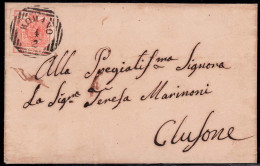 ROMANO
Alla Spegiatis.ma Signora
La Sig.a Teresa Marinoni
Clusone